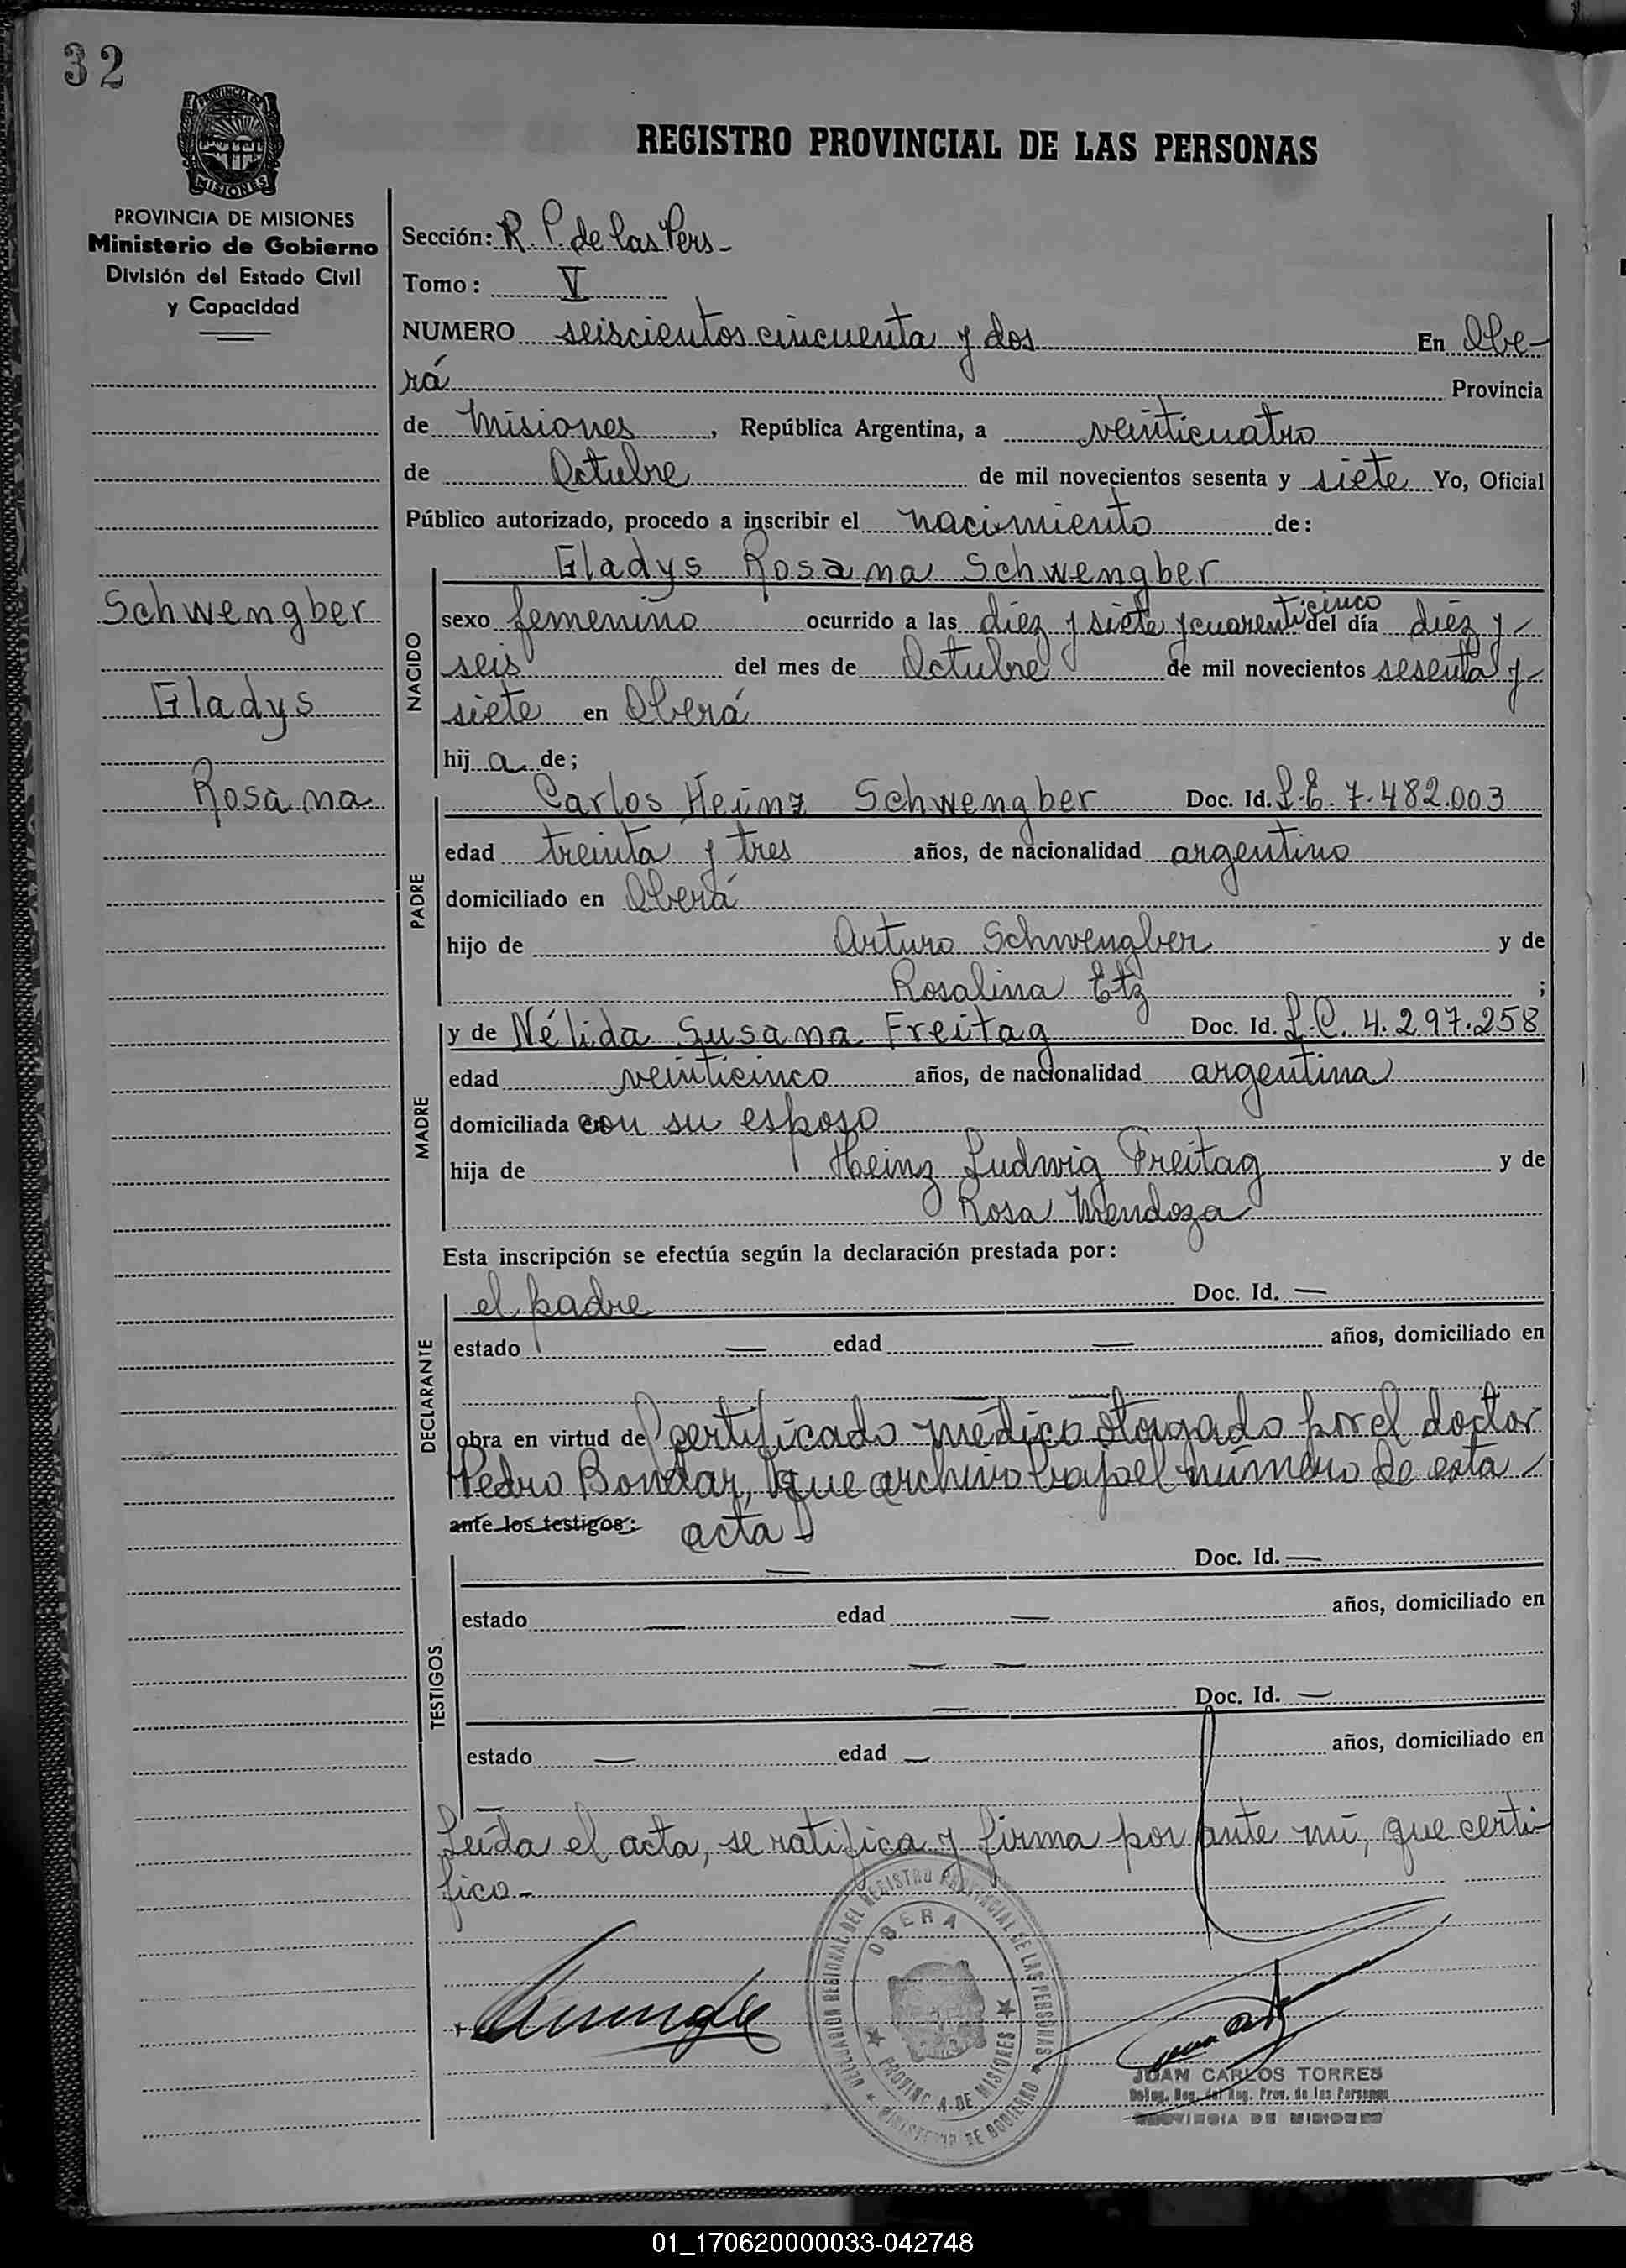 32
PROVINCIA DE
MISIONES
REGISTRO PROVINCIAL DE LAS PERSONAS
PROVINCIA DE MISIONES
Ministerio de Gobierno
División del Estado Civil
y Capacidad
Sección: R. P. de las Pers-
Tomo: V
NUMERO seiscientos cincuenta y dos En Obe-
rá Provincia
de Misiones, República Argentina, a veinticuatro
de Octubre de mil novecientos sesenta y siete Yo, Oficial
Público autorizado, procedo a inscribir el nacimiento de:
Schwengber
Gladys
Rosana
NACIDO
Gladys Rosana Schwengber
sexo femenino ocurrido a las diez y siete y cuarenti cinco del día diez y-
seis del mes de Octubre de mil novecientos sesenta y-
siete en Oberá
hij a de;
PADRE
Carlos Heinz Schwengber Doc. Id. L.E. 7.482.003
edad treinta y tres años, de nacionalidad argentino
domiciliado en Oberá
hijo de Arturo Schwengber y de
Rosalina Etz ;
MADRE
y de Nélida Susana Freitag Doc. Id. L.C. 4.297.258
edad veinticinco años, de nacionalidad argentina
domiciliada en con su esposo
hija de Heinz Ludwig Freitag y de
Rosa Mendoza
Esta inscripción se efectúa según la declaración prestada por:
DECLARANTE
el padre Doc. Id. —
estado — edad — años, domiciliado en
— —
obra en virtud de certificado médico otorgado por el doctor
Pedro Bondar, que archivo bajo el número de esta
ante los testigos: acta-
TESTIGOS
— Doc. Id. —
estado — edad — años, domiciliado en
— —
— Doc. Id. —
estado — edad — años, domiciliado en
—
Leída el acta, se ratifica y firma por ante mí, que certi-
fico-
DELEGACION REGIONAL DEL REGISTRO PROVINCIAL DE LAS PERSONAS
MINISTERIO DE GOBIERNO
OBERA
PROVINCIA DE MISIONES
JUAN CARLOS TORRES
Deleg. Reg. del Reg. Prov. de las Personas
PROVINCIA DE MISIONES
01_170620000033-042748